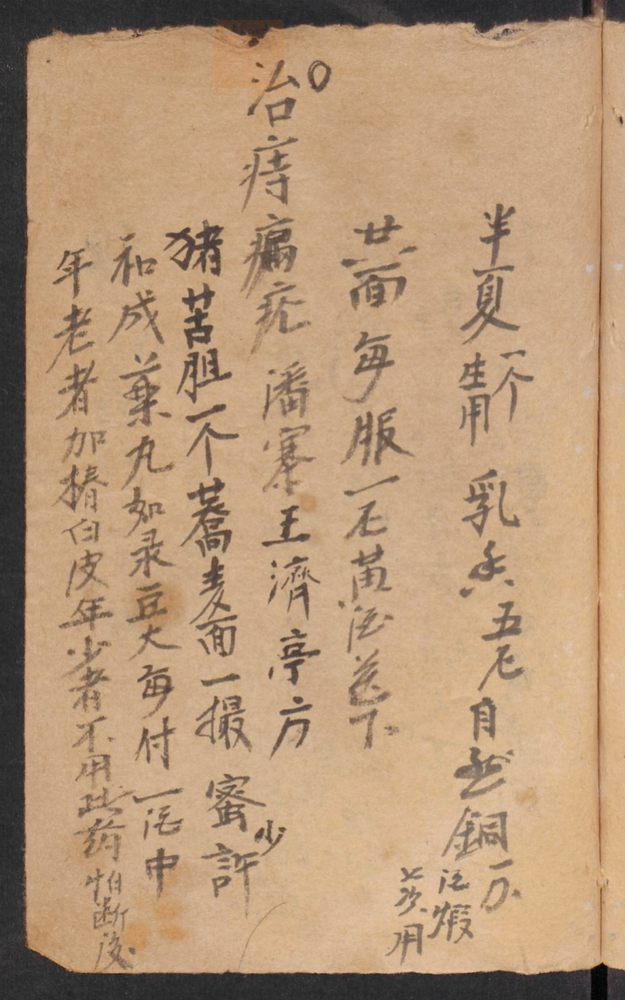 半夏一个生用 乳香五分 自然銅一分 酒煅七次用
共面每服一分黄酒送下
○治痔漏疮 潘寨王濟亭方
猪苦胆一个蕎麦面一撮 蜜少許
和成藥丸如录豆大每付一酒中
年老者加椿白皮年少者不用此药怕断後